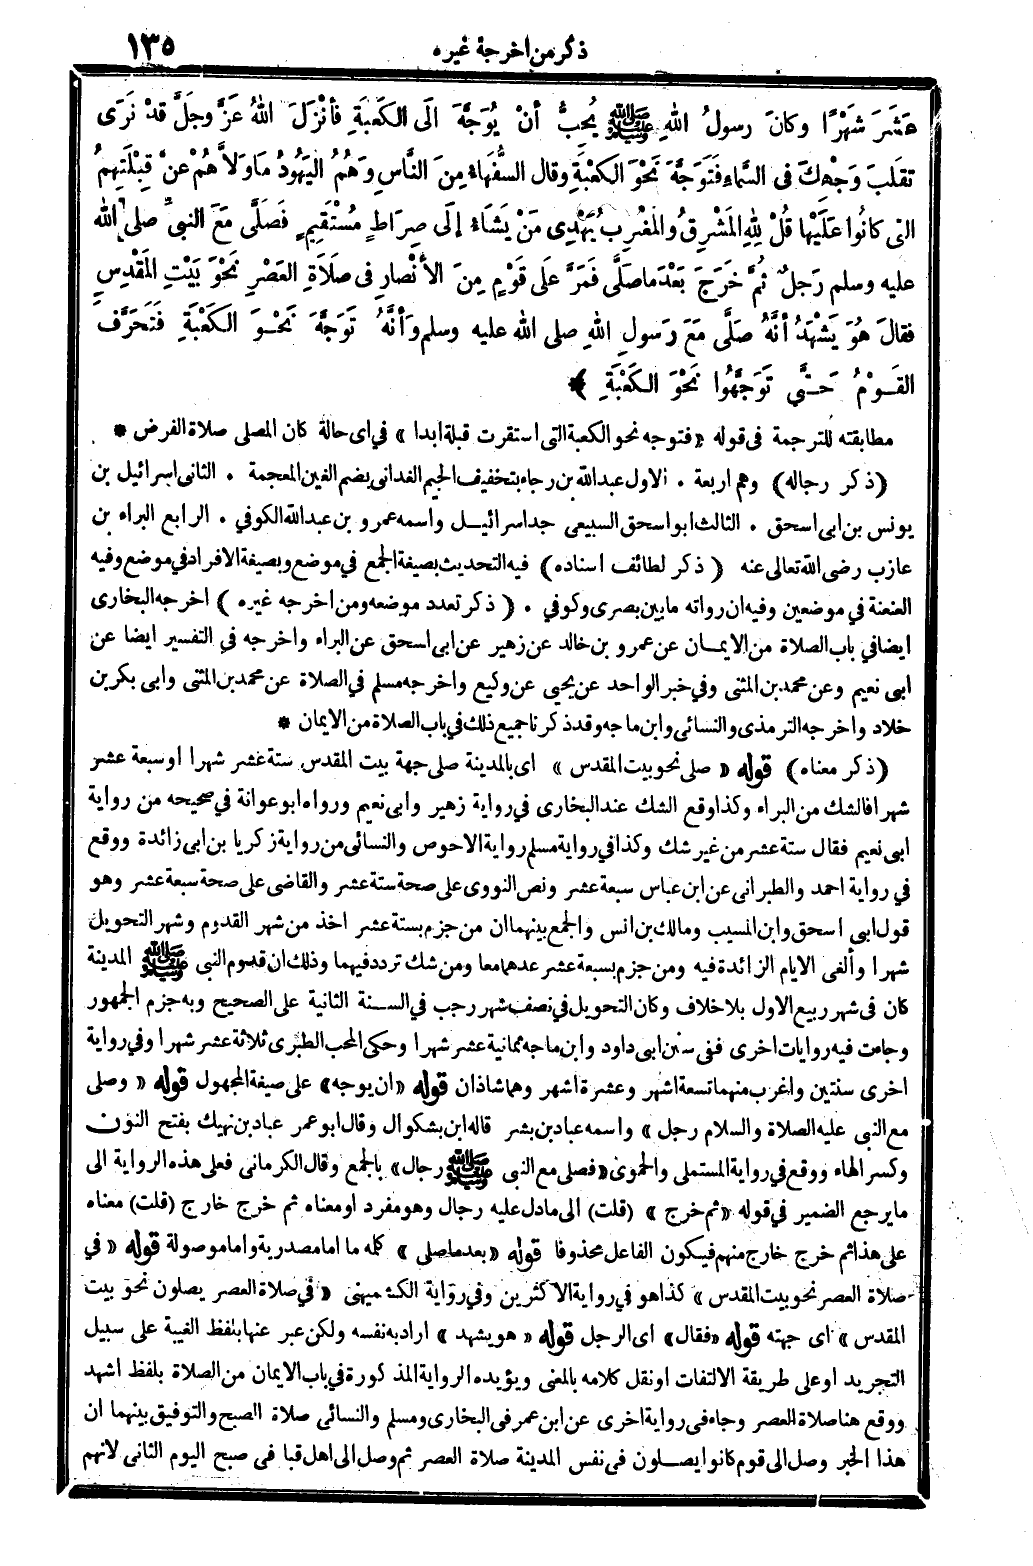 ذكر من اخرجه غيره ١٣٥
عَشَرَ شَهْرًا وكانَ رسولُ اللهِ ﷺ يُحِبُّ أنْ يُوَجَّهَ الَى الكَعبَةِ فأنْزَلَ اللهُ عَزَّ وجَلَّ قَدْ نَرَى
تقَلُّبَ وَجْهِكَ فى السَّماءِ فَتَوَجَّهَ نَحْوَ الكَعْبَةِ وقال السُّفَهَاءُ مِنَ النَّاسِ وَهُمُ اليَهُودُ مَا وَلاَّهُمْ عَنْ قِبْلَتِهِمُ
التى كانُوا عَلَيْها قُلْ لِلهِ المَشْرِقُ والمَغْرِبُ يَهْدِى مَنْ يَشَاءُ إلَى صِرَاطٍ مُسْتَقِيمٍ فَصَلَّى مَعَ النبىِّ صلى الله
عليه وسلم رَجلٌ ثُمَّ خَرَجَ بَعْدَ ما صَلَّى فَمَرَّ عَلَى قَوْمٍ مِنَ الأنْصارِ فى صَلَاةِ العَصْرِ نَحْوَ بَيْتِ المَقْدِسِ
فقالَ هُوَ يَشْهَدُ أنَّهُ صَلَّى مَعَ رَسولِ اللهِ صلى الله عليه وسلم وَأنَّهُ تَوَجَّهَ نَحْوَ الكَعْبَةِ فَتَحَرَّفَ
القَوْمُ حَتَّى تَوَجَّهُوا نَحْوَ الكَعْبَةِ ﴾ *
مطابقته للترجمة فى قوله «فتوجه نحو الكعبة التى استقرت قبلة ابدا» في اى حالة كان المصلى صلاة الفرض *
(ذكر رجاله) وهم اربعة . الاول عبدالله بن رجاء بتخفيف الجيم الغدانى بضم الغين المعجمة . الثانى اسرائيل بن
يونس بن ابى اسحق . الثالث ابو اسحق السبيعى جد اسرائيل واسمه عمرو بن عبدالله الكوفي . الرابع البراء بن
عازب رضى الله تعالى عنه (ذكر لطائف اسناده) فيه التحديث بصيغة الجمع في موضع وبصيغة الافراد في موضع وفيه
العنعنة في موضعين وفيه ان رواته ما بين بصرى وكوفي . (ذكر تعدد موضعه ومن اخرجه غيره) اخرجه البخارى
ايضا في باب الصلاة من الايمان عن عمرو بن خالد عن زهير عن ابى اسحق عن البراء واخرجه في التفسير ايضا عن
ابى نعيم وعن محمد بن المثنى وفي خبر الواحد عن يحيى عن وكيع واخرجه مسلم في الصلاة عن محمد بن المثنى وابى بكر بن
خلاد واخرجه الترمذى والنسائى وابن ماجه وقد ذكرنا جميع ذلك في باب الصلاة من الايمان *
(ذكر معناه) قوله «صلى نحو بيت المقدس» اى بالمدينة صلى جهة بيت المقدس ستة عشر شهرا او سبعة عشر
شهرا فالشك من البراء وكذا وقع الشك عند البخارى في رواية زهير وابى نعيم ورواه ابو عوانة في صحيحه من رواية
ابى نعيم فقال ستة عشر من غير شك وكذا في رواية مسلم رواية الاحوص والنسائى من رواية زكريا بن ابى زائدة ووقع
في رواية احمد والطبرانى عن ابن عباس سبعة عشر ونص النووى على صحة ستة عشر والقاضى على صحة سبعة عشر وهو
قول ابى اسحق وابن المسيب ومالك بن انس والجمع بينهما ان من جزم بستة عشر اخذ من شهر القدوم وشهر التحويل
شهرا وألغى الايام الزائدة فيه ومن جزم بسبعة عشر عدهما معا ومن شك تردد فيهما وذلك ان قدوم النبى ﷺ المدينة
كان فى شهر ربيع الاول بلا خلاف وكان التحويل في نصف شهر رجب في السنة الثانية على الصحيح وبه جزم الجمهور
وجاءت فيه روايات اخرى ففى سنن ابى داود وابن ماجه ثمانية عشر شهرا وحكى المحب الطبرى ثلاثة عشر شهرا وفي رواية
اخرى سنتين واغرب منهما تسعة اشهر وعشرة اشهر وهما شاذان قوله «ان يوجه» على صيغة المجهول قوله «وصلى
مع النبى عليه الصلاة والسلام رجل» واسمه عباد بن بشر قاله ابن بشكوال وقال ابو عمر عباد بن نهيك بفتح النون
وكسر الهاء ووقع في رواية المستملى والحموى «فصلى مع النبى ﷺ رجال» بالجمع وقال الكرمانى فعلى هذه الرواية الى
ما يرجع الضمير في قوله «ثم خرج» (قلت) الى ما دل عليه رجال وهو مفرد او معناه ثم خرج خارج (قلت) معناه
على هذا ثم خرج خارج منهم فيكون الفاعل محذوفا قوله «بعد ما صلى» كلمه ما اما مصدرية واما موصولة قوله «في
صلاة العصر نحو بيت المقدس» كذا هو في رواية الاكثرين وفي رواية الكشميهنى «في صلاة العصر يصلون نحو بيت
المقدس» اى جهته قوله «فقال» اى الرجل قوله «هو يشهد» اراد به نفسه ولكن عبر عنها بلفظ الغيبة على سبيل
التجريد او على طريقة الالتفات او نقل كلامه بالمعنى ويؤيده الرواية المذكورة في باب الايمان من الصلاة بلفظ اشهد
ووقع هنا صلاة العصر وجاء فى رواية اخرى عن ابن عمر فى البخارى ومسلم والنسائى صلاة الصبح والتوفيق بينهما ان
هذا الخبر وصل الى قوم كانوا يصلون فى نفس المدينة صلاة العصر ثم وصل الى اهل قبا فى صبح اليوم الثانى لانهم